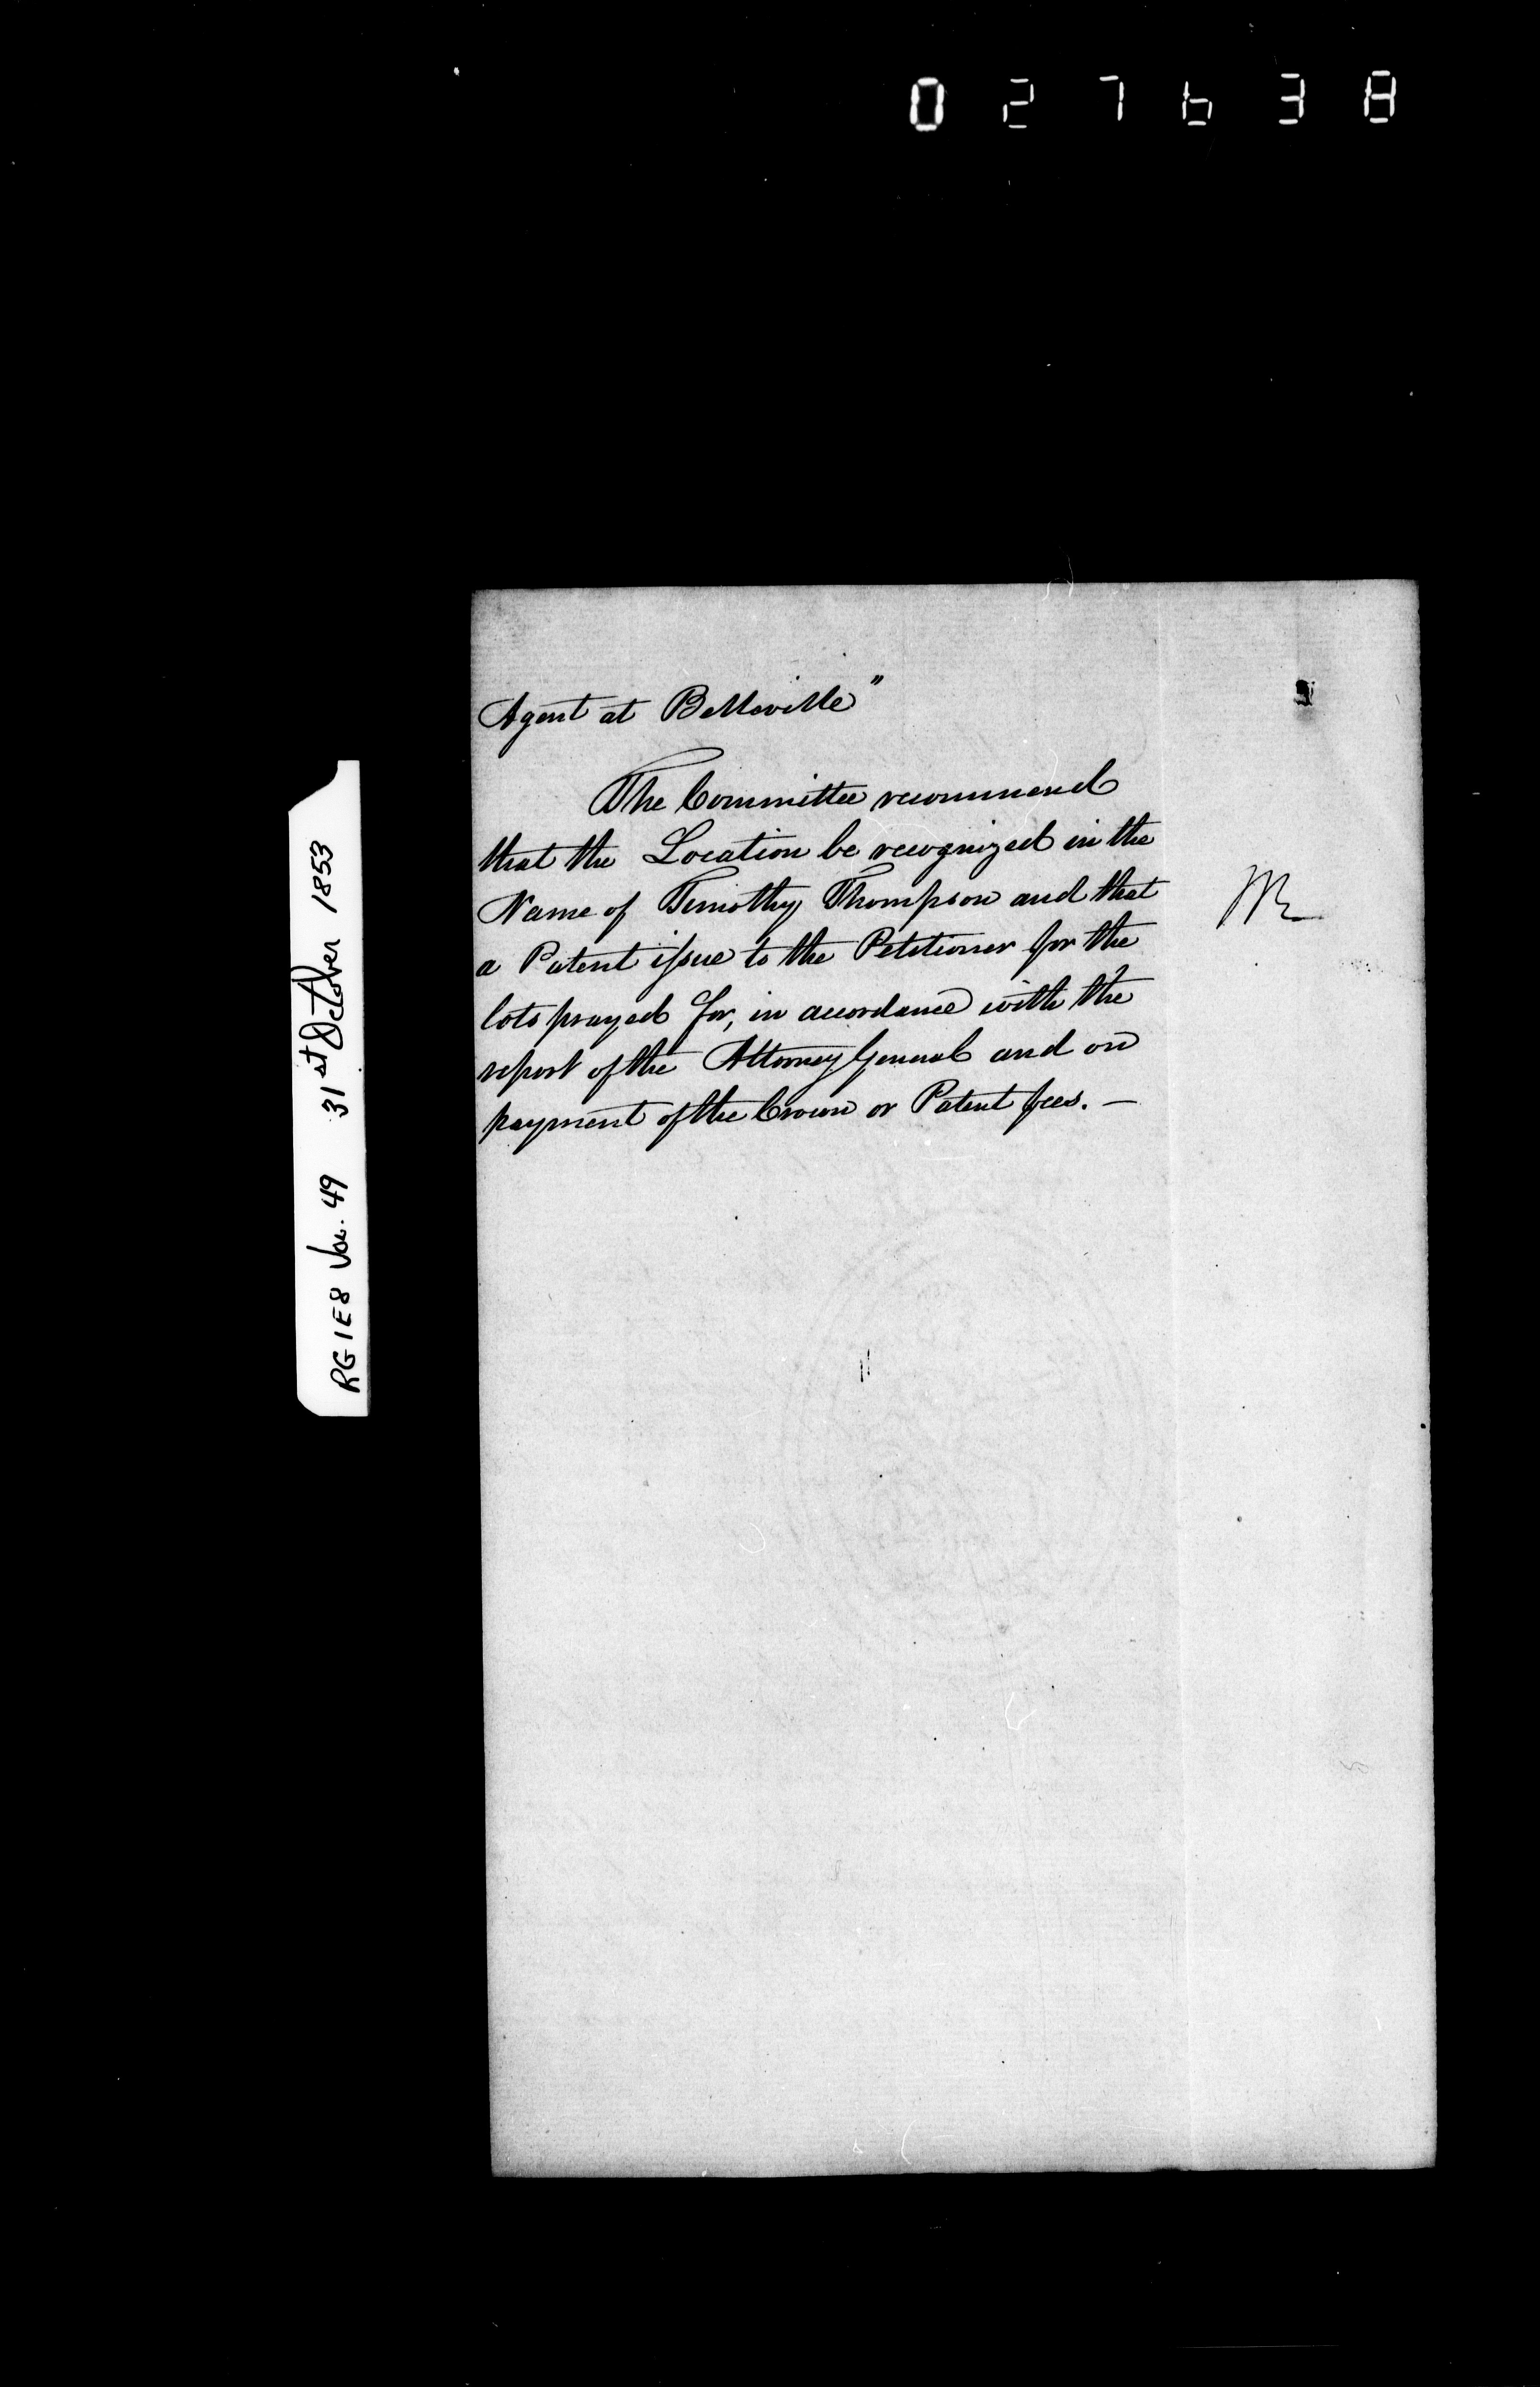 027638
Agent at Belleville"
The Committee recommend
that the Location be recognized in the
Name of Timothy Thompson and that
a Patent issue to the Petitioner for the
lots prayed for, in accordance with the
report of the Attorney General and on
payment of the Crown or Patent fees. —
RG 1 E8 Vol. 49 31st October 1853